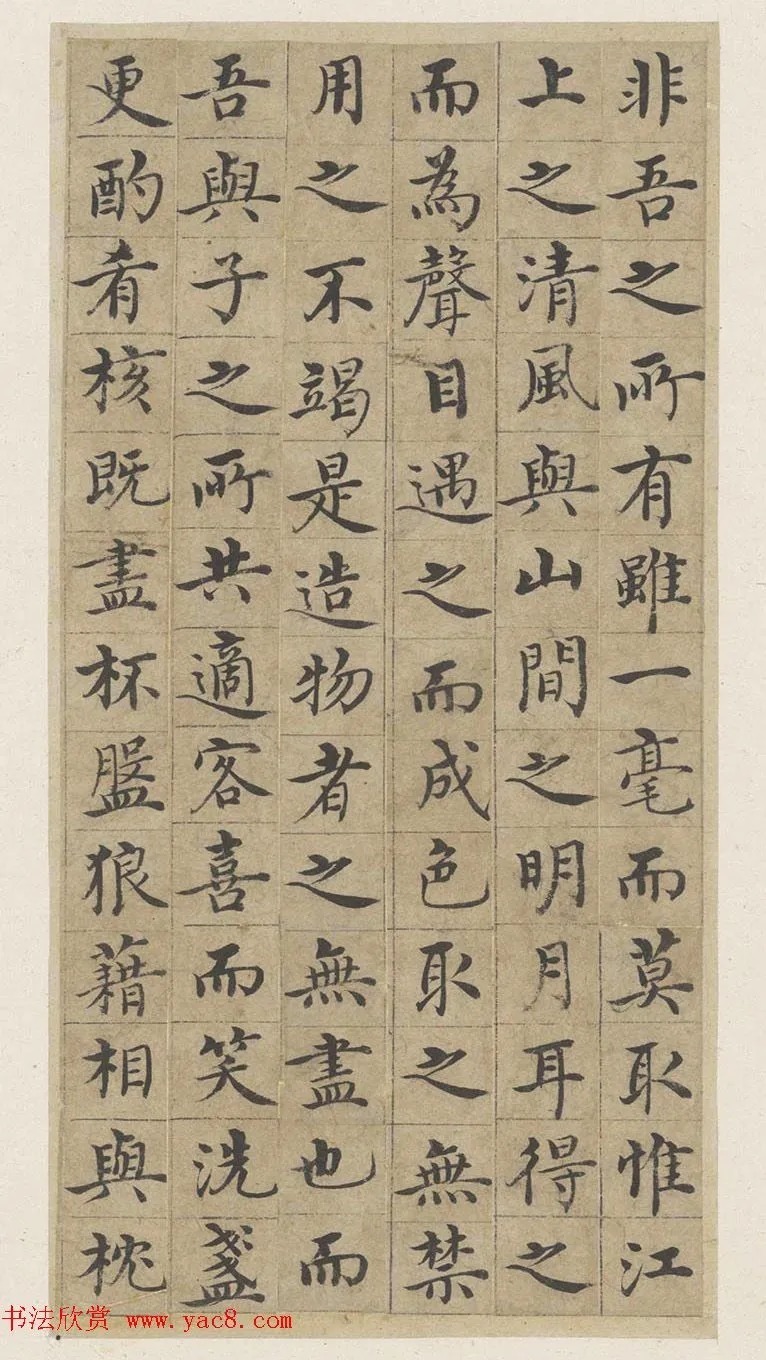 非吾之所有雖一毫而莫取惟江
上之清風與山間之明月耳得之
而為聲目遇之而成色取之無禁
用之不竭是造物者之無盡也而
吾與子之所共適客喜而笑洗盞
更酌肴核既盡杯盤狼藉相與枕
书法欣赏 www.yac8.com